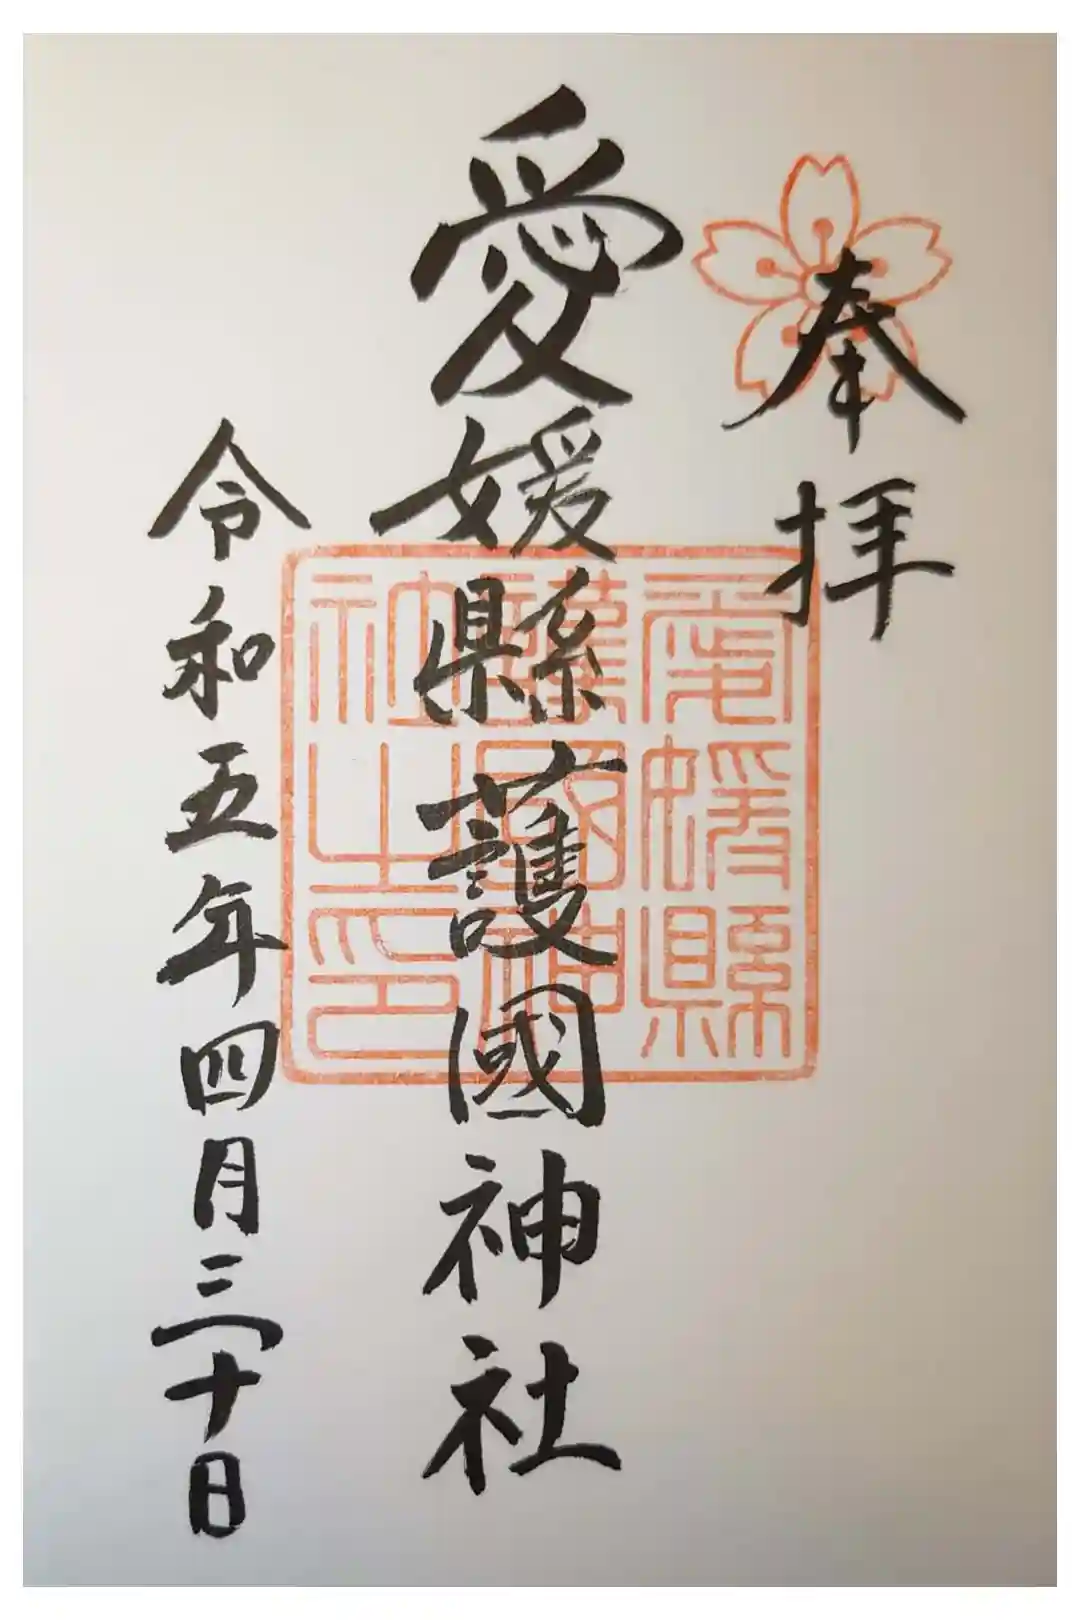 奉拝
愛媛縣護國神社
愛媛縣
護國神
社之印
令和五年四月三十日